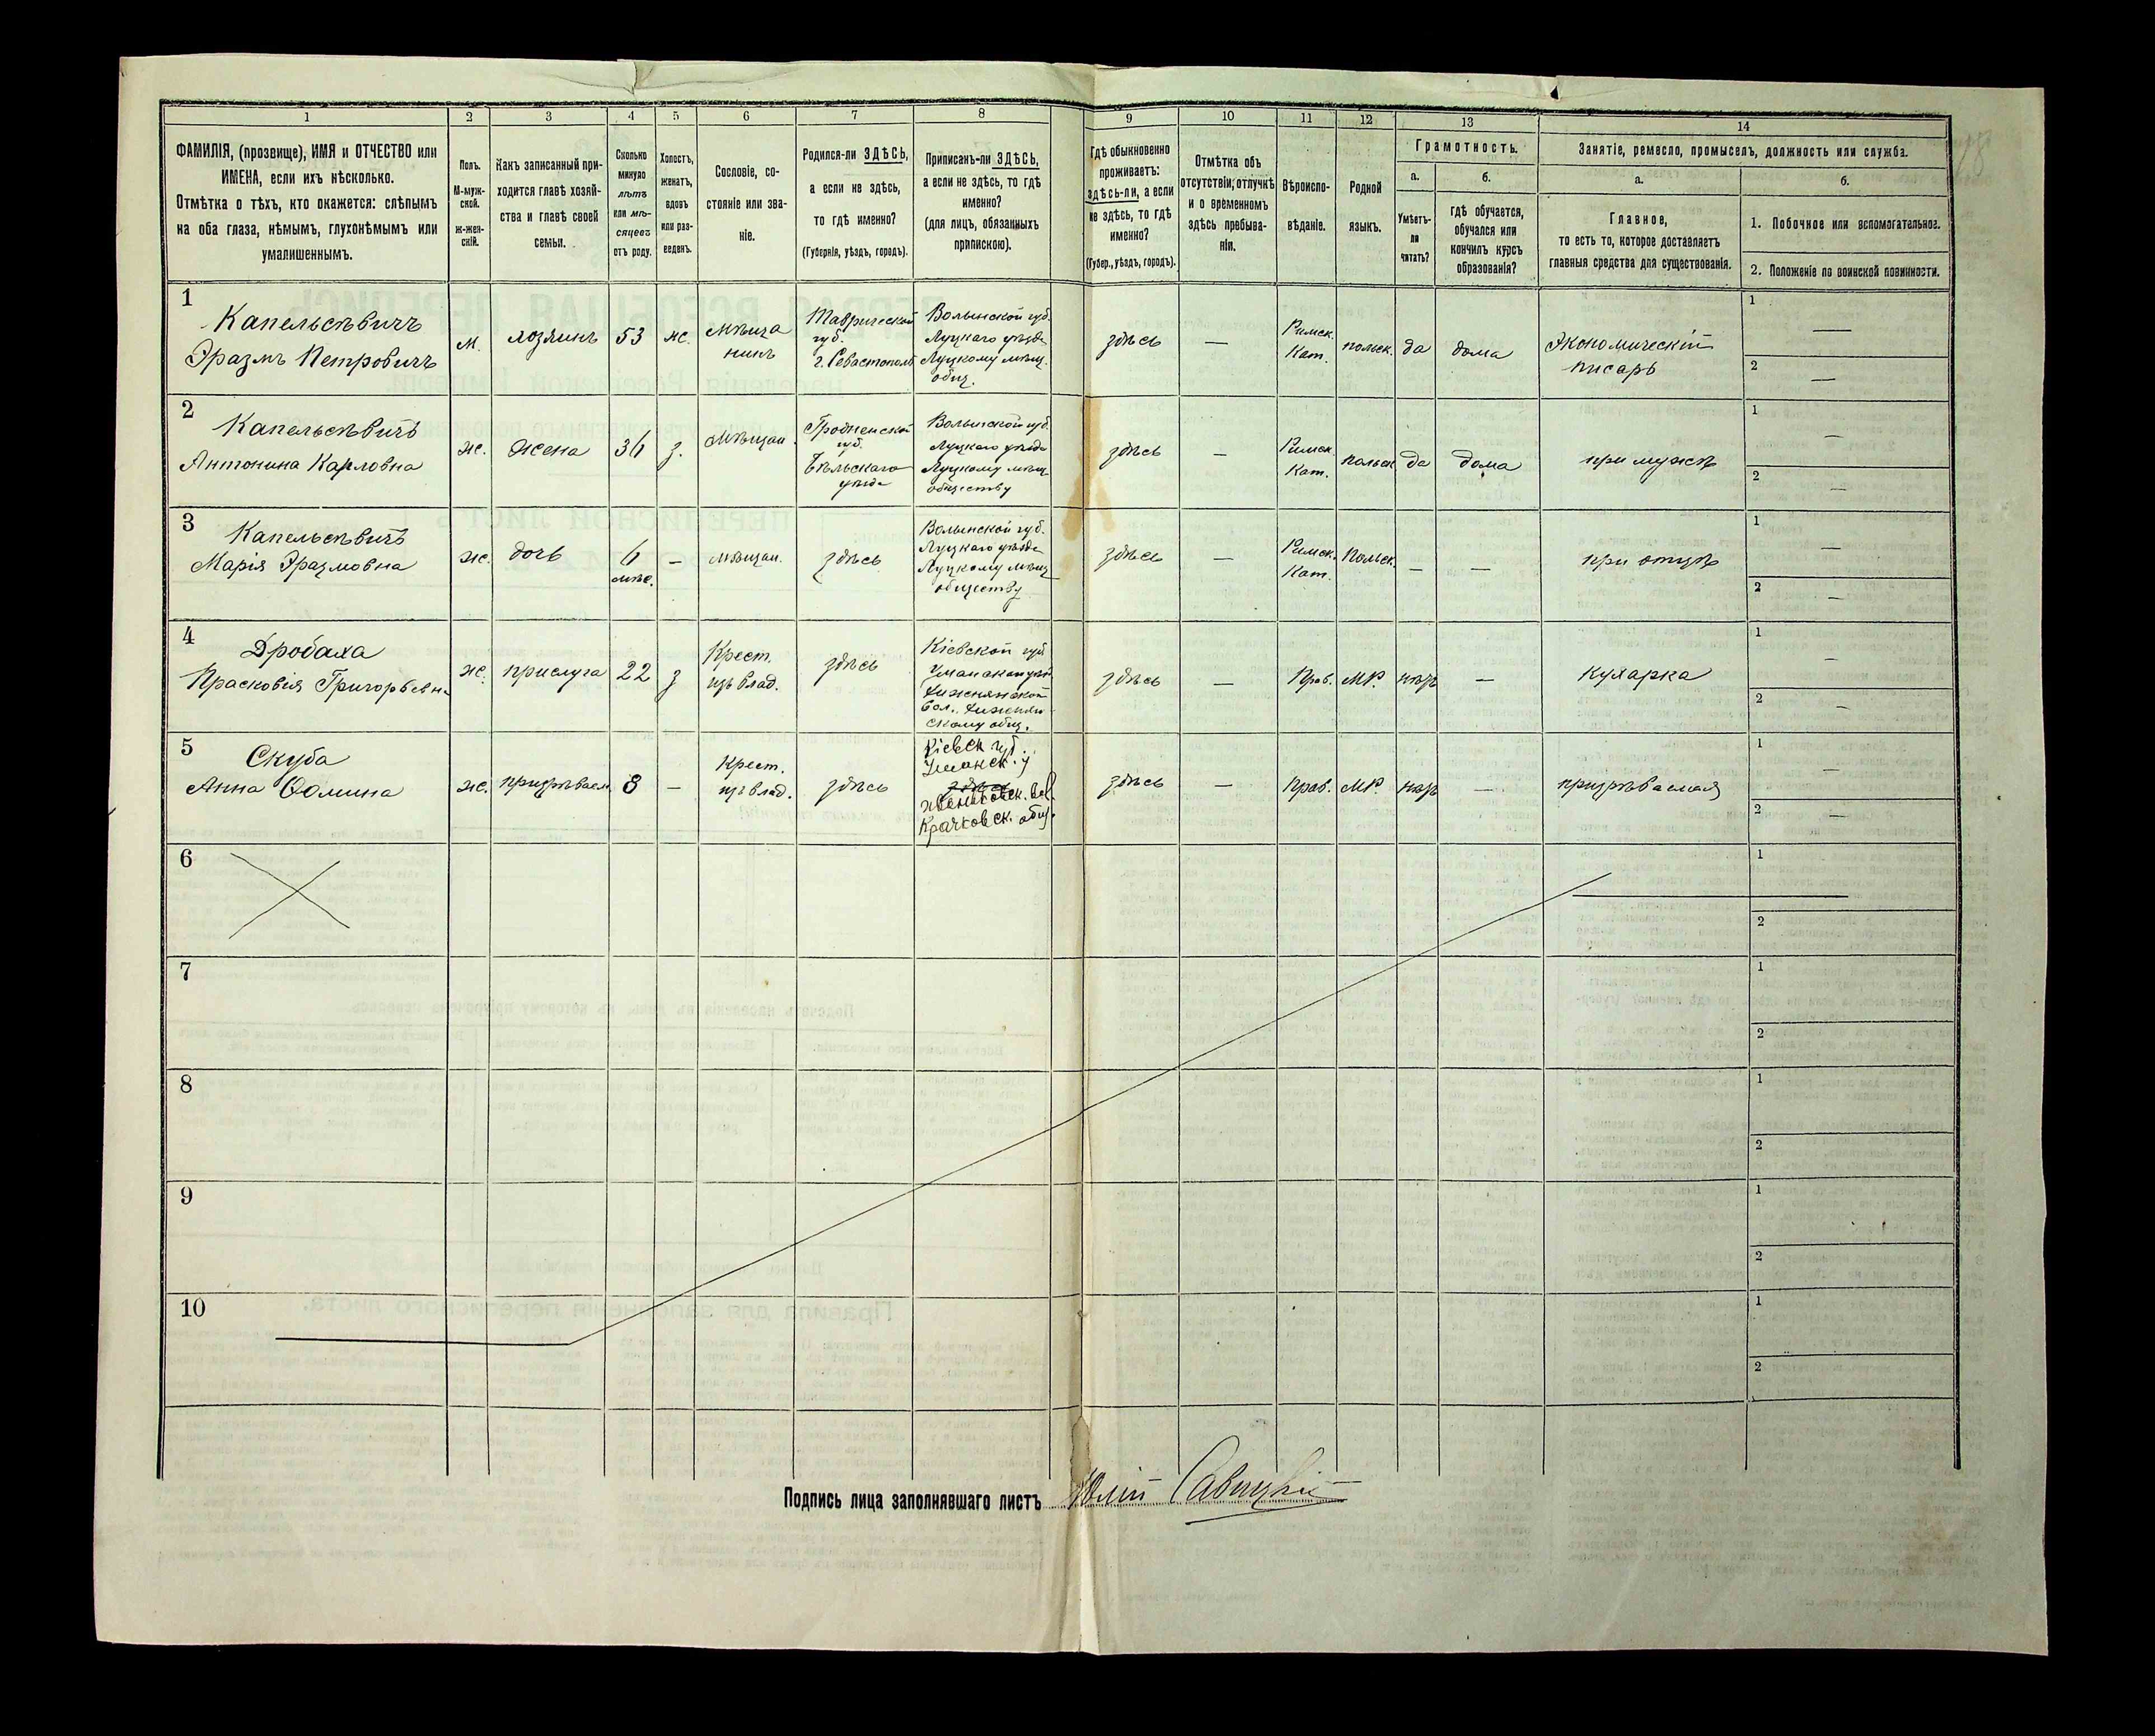 1 2 3 4 5 6 7 8 9 10 11 12 13 14
ФАМИЛІЯ, (прозвище), ИМЯ и ОТЧЕСТВО или
ИМЕНА, если ихъ нѣсколько.
Отмѣтка о тѣхъ, кто окажется: слѣпымъ
на оба глаза, нѣмымъ, глухонѣмымъ или
умалишеннымъ.
Полъ.
М-муж-
ской.
ж-жен-
скій.
Какъ записанный при-
ходится главѣ хозяй-
ства и главѣ своей
семьи.
Сколько
минуло
лѣтъ
или мѣ-
сяцевъ
отъ роду.
Холостъ,
женатъ,
вдовъ
или раз-
веденъ.
Сословіе, со-
стояніе или зва-
ніе.
Родился-ли ЗДѢСЬ,
а если не здѣсь,
то гдѣ именно?
(Губернія, уѣздъ, городъ).
Приписанъ-ли ЗДѢСЬ,
а если не здѣсь, то гдѣ
именно?
(для лицъ, обязанныхъ
припискою).
Гдѣ обыкновенно
проживаетъ:
здѣсь-ли, а если
не здѣсь, то гдѣ
именно?
(Губер., уѣздъ, городъ).
Отмѣтка объ
отсутствіи, отлучкѣ
и о временномъ
здѣсь пребыва-
ніи.
Вѣроиспо-
вѣданіе.
Родной
языкъ.
Грамотность.
а.
Умѣетъ-
ли
читать?
б.
гдѣ обучается,
обучался или
кончилъ курсъ
образованія?
Занятіе, ремесло, промыселъ, должность или служба.
а.
Главное,
то есть то, которое доставляетъ
главныя средства для существованія.
б.
1. Побочное или вспомогательное.
2. Положеніе по воинской повинности.
1
Капельсѣвичъ
Эразмъ Петровичъ
м.
хозяинъ
53
ж.
мѣща
нинъ
Таврической
губ.
г. Севастополь
Волынской губ.
Луцкаго уѣзда
Луцкому мѣщ.
общ.
здѣсь
—
Римск.
Кат.
польск.
да
дома
Экономическій
писарь
1
—
2
—
2
Капельсѣвичъ
Антонина Карловна
ж.
жена
36
з.
мѣщан.
Гродненской
губ.
Бѣльскаго
уѣзда
Волынской губ.
Луцкаго уѣзда
Луцкому мѣщ.
обществу
здѣсь
—
Римск.
Кат.
польск.
да
дома
при мужѣ
1
—
2
—
3
Капельсѣвичъ
Марія Эразмовна
ж.
дочь
6
мѣс.
—
мѣщан.
здѣсь
Волынской губ.
Луцкаго уѣзда
Луцкому мѣщ.
обществу
здѣсь
—
Римск.
Кат.
Польск.
—
—
при отцѣ
1
—
2
—
4
Дробаха
Прасковія Григорьевна
ж.
прислуга
22
з
Крест.
изъ влад.
здѣсь
Кіевской губ.
скому общ.
здѣсь
—
Прав.
МР.
нѣтъ
—
кухарка
1
—
2
—
5
Скуба
Анна Ѳомина
ж.
призрѣваем.
8
—
Крест.
изъ влад.
здѣсь
Кіевск губ.
Уманск. у
здѣсь
Крачковск. общ.
здѣсь
—
Прав.
МР.
нѣтъ
—
призрѣваемая
1
—
2
—
6
1
2
7
1
2
8
1
2
9
1
2
10
1
2
Подпись лица заполнявшаго листъ Юлій Савицкій